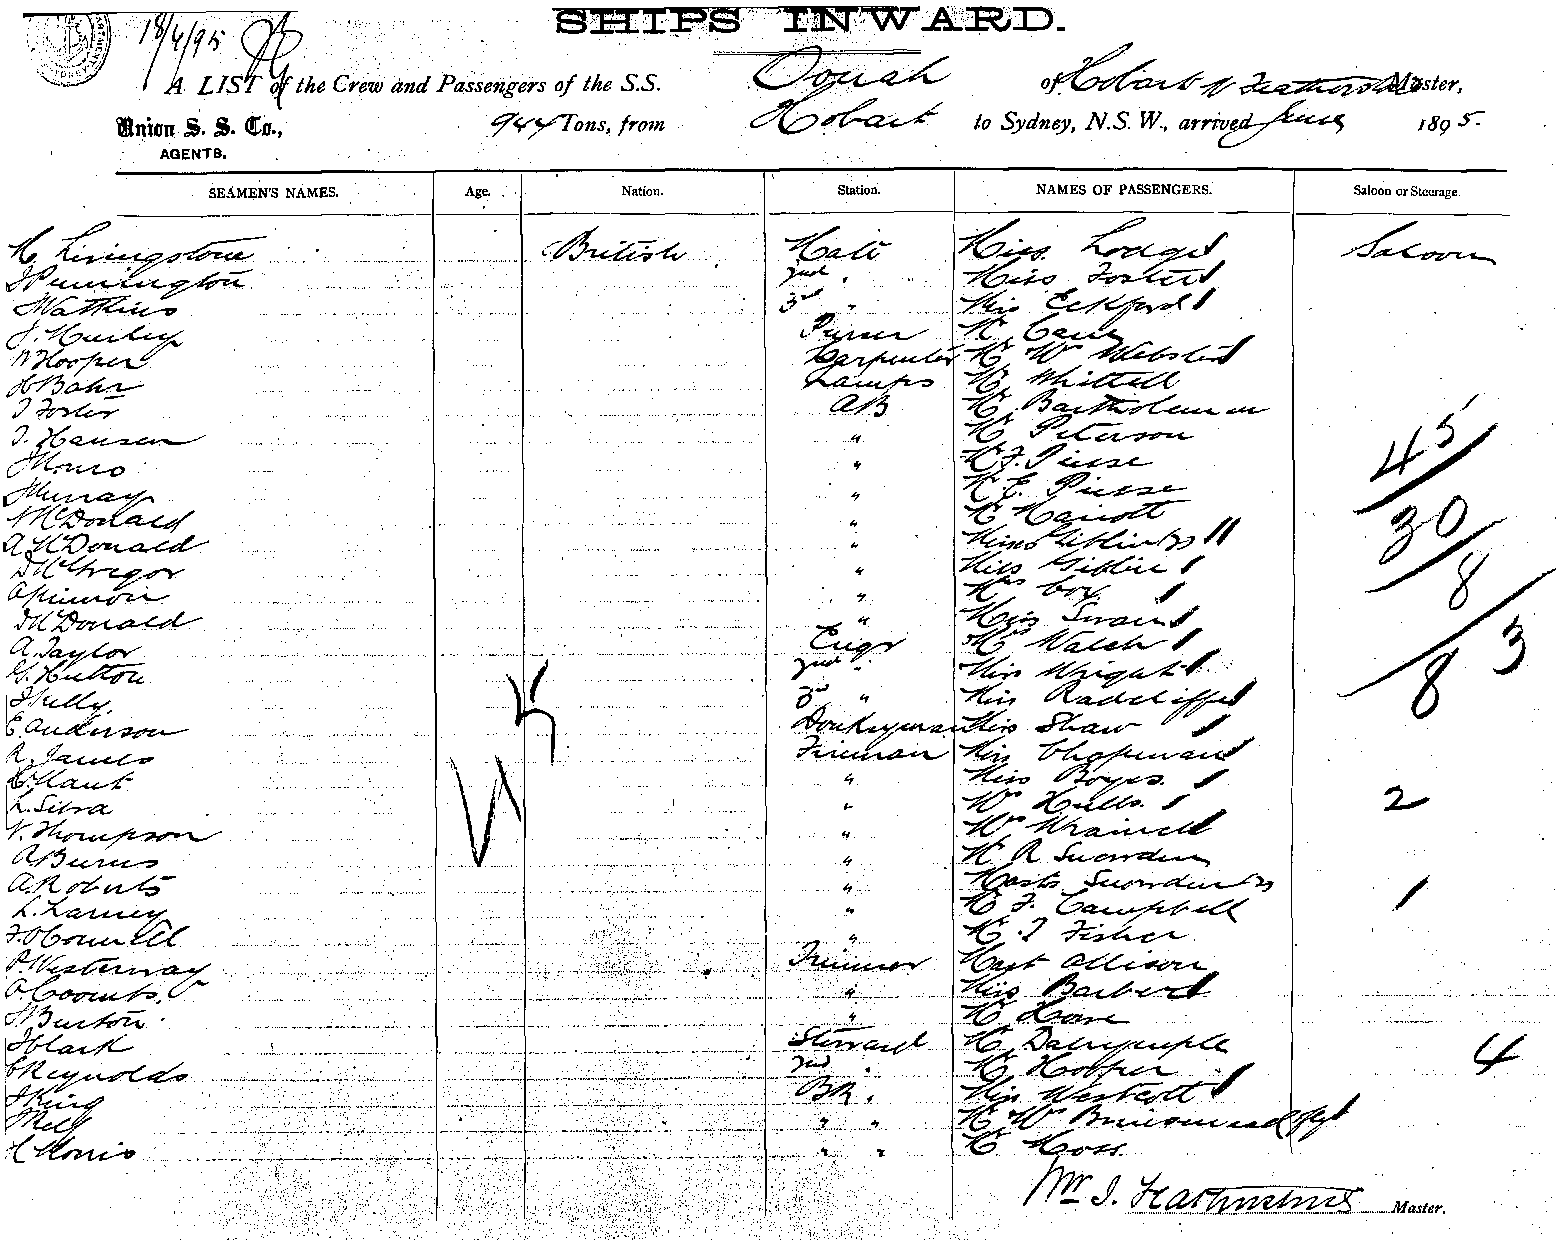 SHIPS INWARD.
18/6/95
A LIST of the Crew and Passengers of the S.S. Oonah of Hobart W Featherstone Master,
Union S. S. Co., 944 Tons, from Hobart to Sydney, N.S.W., arrived June 1895.
AGENTS.
SEAMEN'S NAMES. Age. Nation. Station. NAMES OF PASSENGERS. Saloon or Steerage.
Livingstone British Mate Miss Lodge Saloon
J Pennington 2nd " Miss Foster
Watkins 3rd " Miss Eckford
J. Hurley Purser Mr
W Hooper Carpenter Mr Mrs Webster
H Bahr Lamps Mr Whittell
T Foster AB Mr Bartholomew
T. Hansen " Mr Peterson
J Monro " Mr F. Piesse
J Murray " Mr E. Piesse
McDonald " Mr Marriott
A McDonald " Misses Giblin (2)
D McGregor " Miss Giblin
" Mrs Cox
McDonald " Miss Swain
A. Taylor Engr Mrs Walch
G. Hutton 2nd " Miss Wright
J Kelly 3rd " Miss Radcliffe
E Anderson Donkeyman Miss Shaw
R. James Fireman Miss Chapman
" Miss Boyes
L. Silva " Mrs Hells
V. Thompson "
A Burns " Mr R Snowden
A. Roberts " Masts Snowden (2)
L. Larney " Mr F. Campbell
F. O'Connell " Mr T Fisher
P. Westerway Trimmer Mast Allison
A. Coombs. " Miss Barber
J Burton " Mr Hore
J Clark Steward Mr Dalrymple
C Reynolds 2nd " Mr Hooper
J King BR. Miss Westcott
" " Mr Mrs
Morris " " Mr Moss.
45
30
8
3
8
2
1
4
Wm J. Featherstone Master.